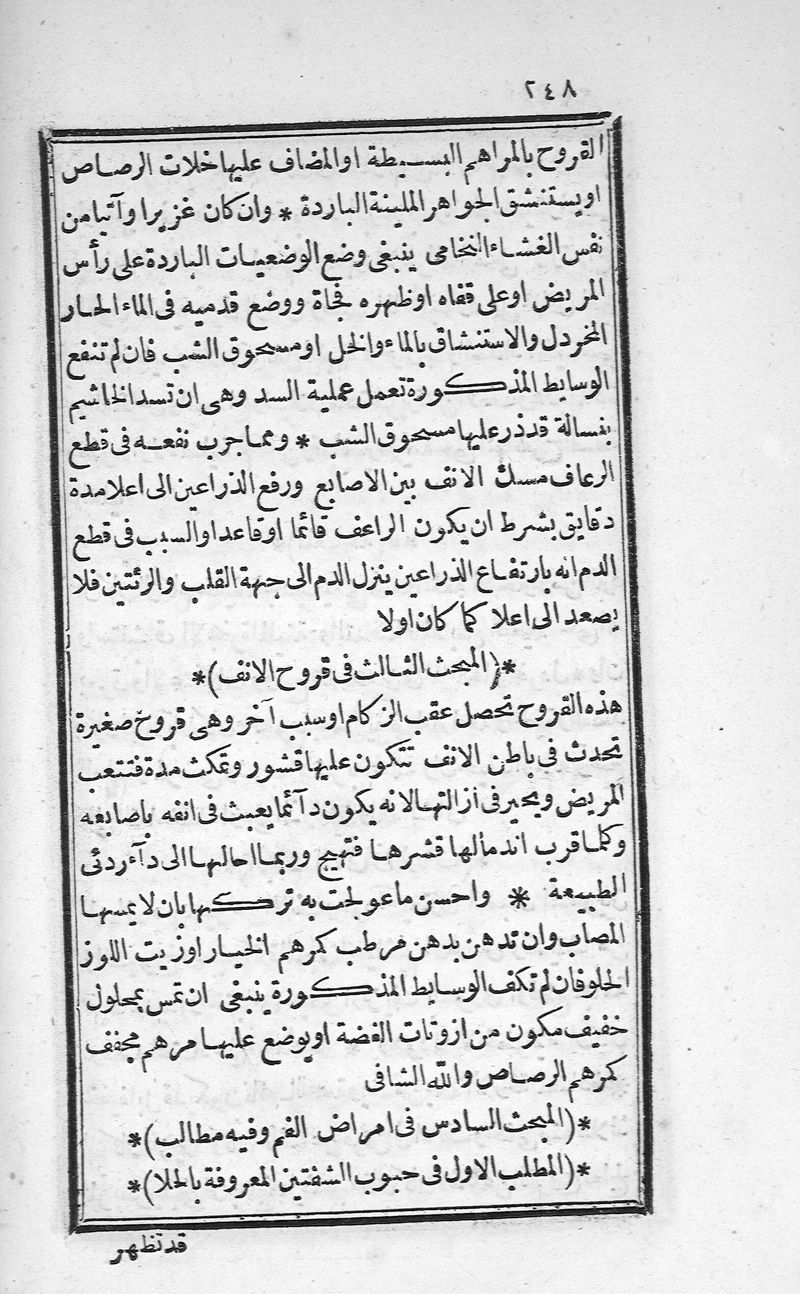 ٢٤٨
القروح بالمراهم البسيطة او المضاف عليها خلات الرصاص
او يستنشق الجواهر الملينة الباردة * وان كان غزيرا وآتيا من
نفس الغشاء النخامى ينبغى وضع الوضعيات الباردة على رأس
المريض او على قفاه او ظهره فجأة ووضع قدميه فى الماء الحار
المخردل والاستنشاق بالماء والخل او مسحوق الشب فان لم تنفع
الوسايط المذكورة تعمل عملية السد وهى ان تسد الخاشيم
بفسالة قد ذر عليها مسحوق الشب * ومما جرب نفعه فى قطع
الرعاف مسك الانف بين الاصابع ورفع الذراعين الى اعلا مدة
دقايق بشرط ان يكون الراعف قائما او قاعدا والسبب فى قطع
الدم انه بارتفاع الذراعين ينزل الدم الى جهة القلب والرئتين فلا
يصعد الى اعلا كما كان اولا
*(المبحث الثالث فى قروح الانف)*
هذه القروح تحصل عقب الزكام او سبب آخر وهى قروح صغيرة
تحدث فى باطن الانف تتكون عليها قشور وتمكث مدة فتتعب
المريض ويحير فى ازالتها لانه يكون دآئما يعبث فى انفه باصابعه
وكلما قرب اندمالها قشرها فتهيج وربما احالها الى دآء ردئى
الطبيعة * واحسن ما عولجت به تركها بان لا يمسها
المصاب وان تدهن بدهن مرطب كمرهم الخيار او زيت اللوز
الحلو فان لم تكف الوسايط المذكورة ينبغى ان تمس بمحلول
خفيف مكون من ازوتات الفضة او يوضع عليها مرهم مجفف
كمرهم الرصاص والله الشافى
*(المبحث السادس فى امراض الفم وفيه مطالب)*
*(المطلب الاول فى حبوب الشفتين المعروفة بالحلا)*
قد تظهر